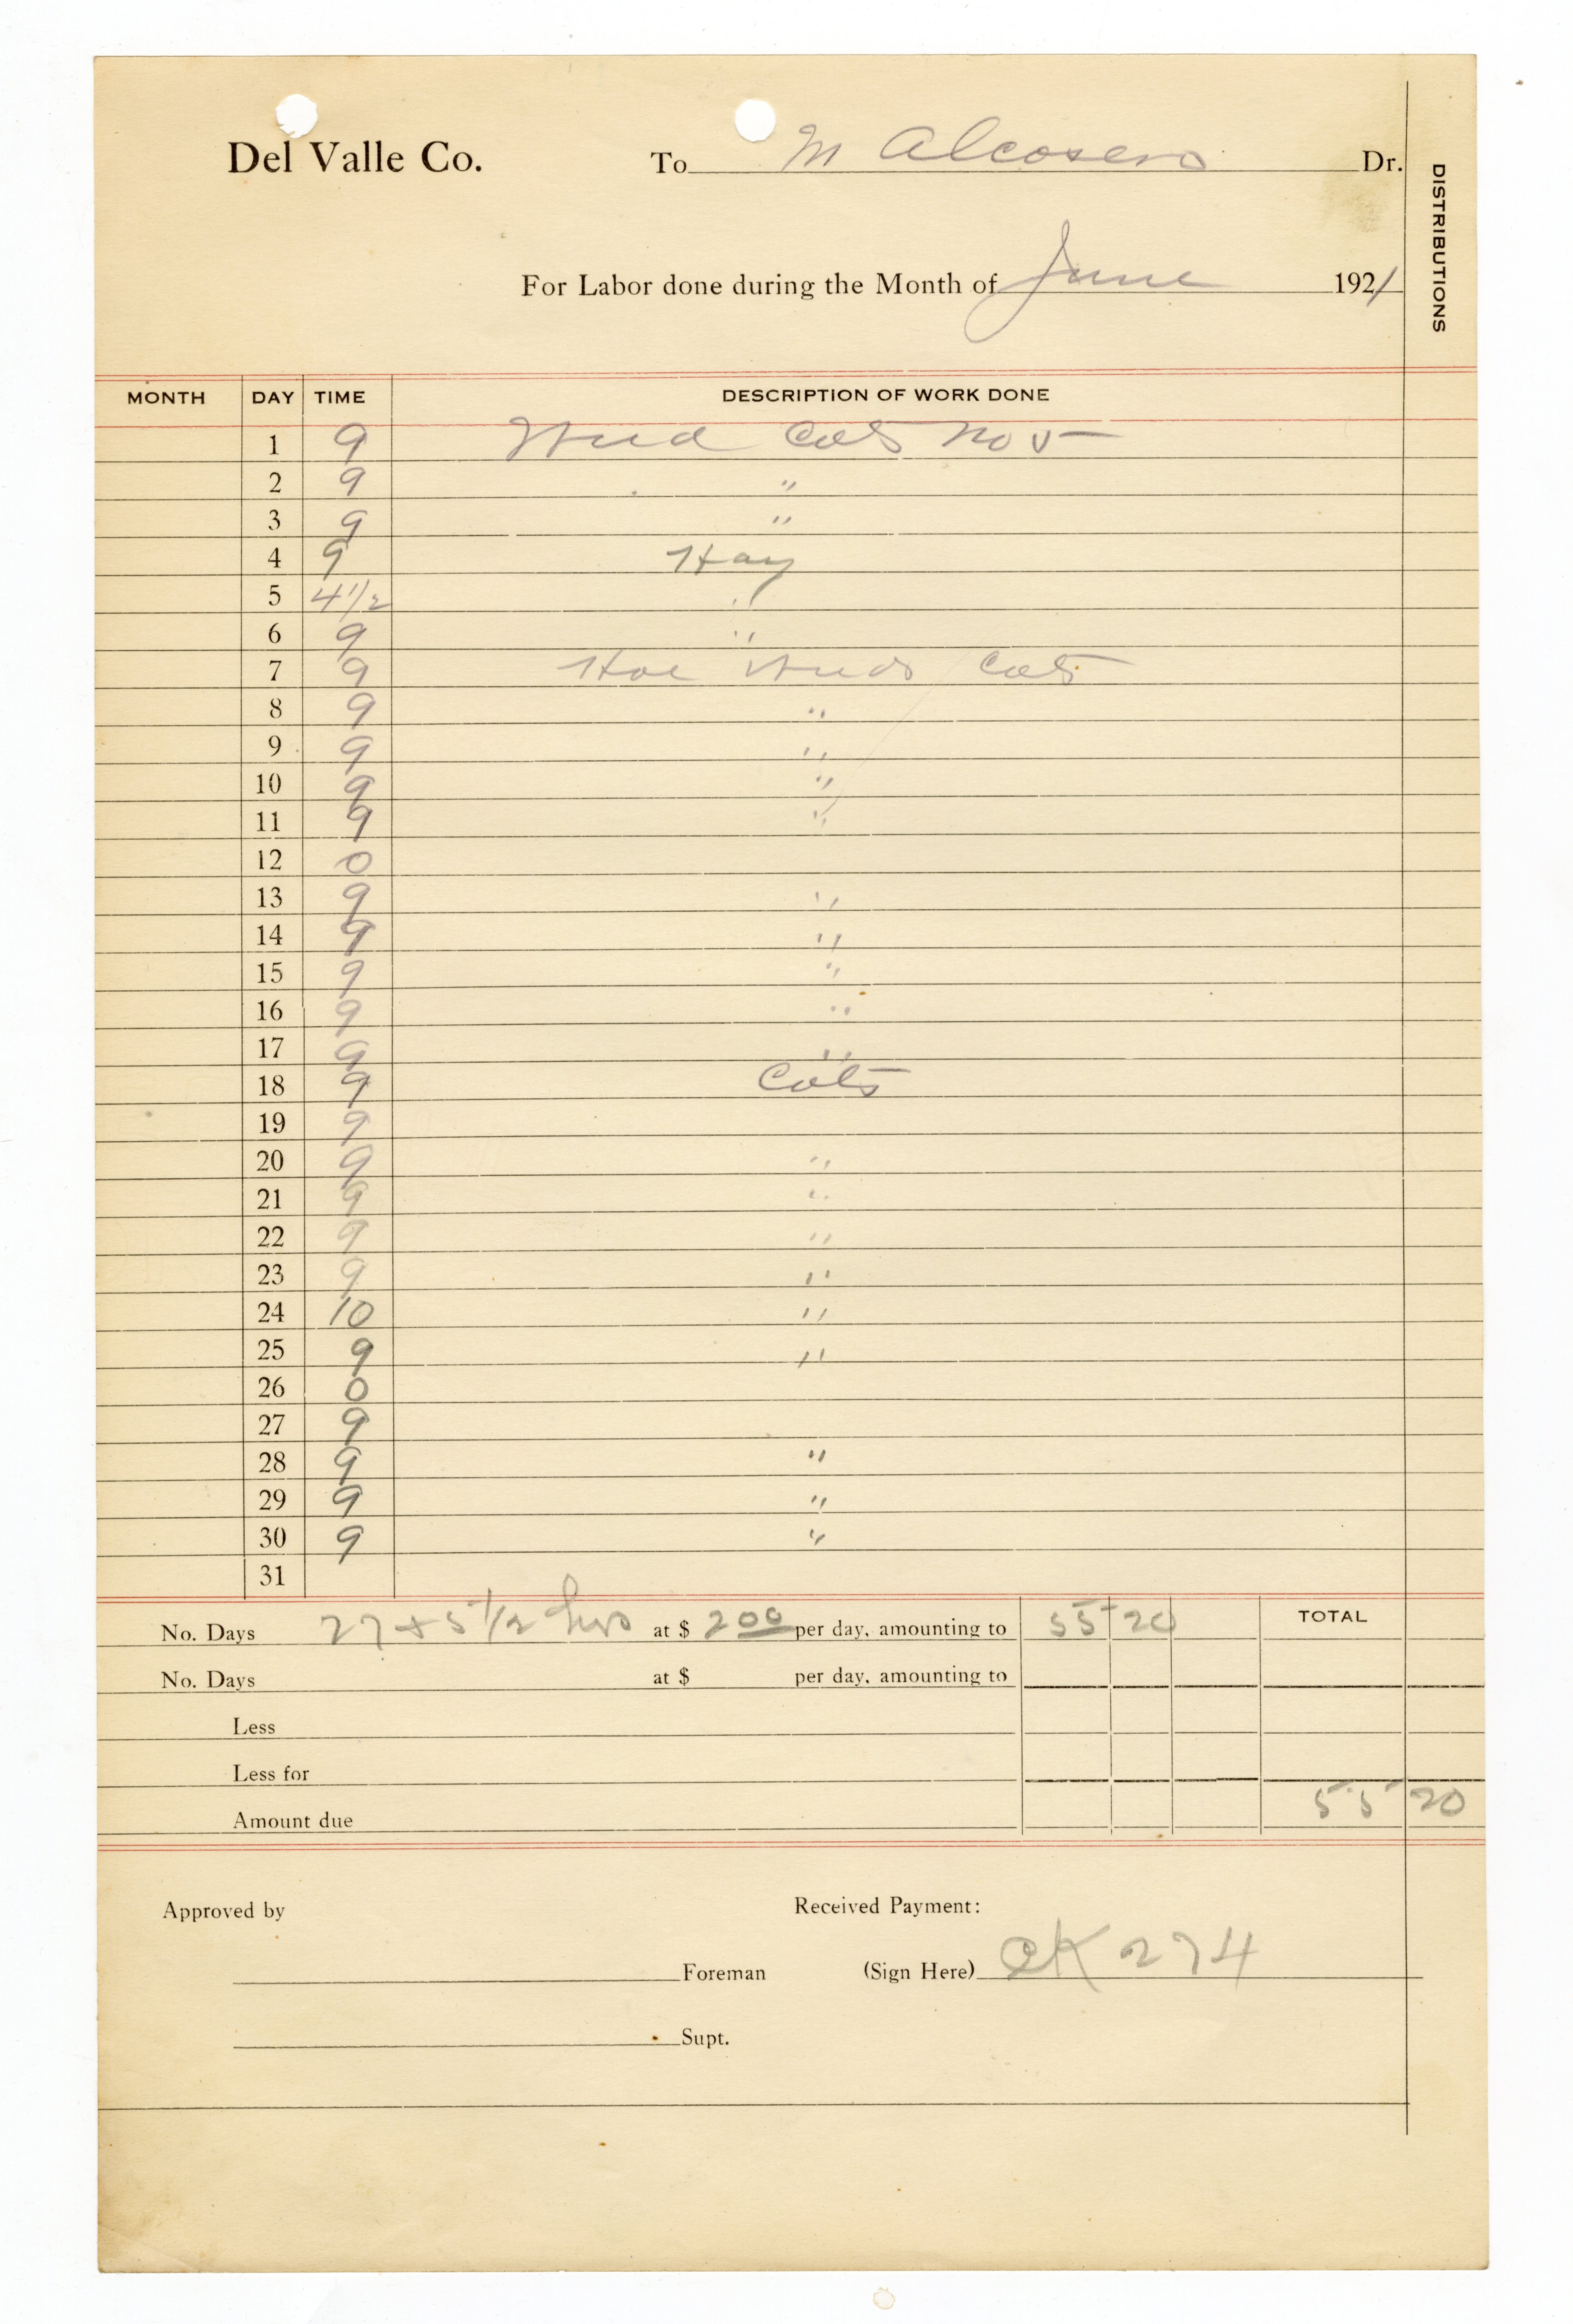 Del Valle Co. To M Alcosero Dr.
DISTRIBUTIONS
For Labor done during the Month of June 1921
MONTH DAY TIME DESCRIPTION OF WORK DONE
1 9 Weed Cots No 5
2 9 "
3 9 "
4 9 Hay
5 4 1/2 "
6 9 "
7 9 Hoe Weeds Cots
8 9 "
9 9 "
10 9 "
11 9 "
12 0
13 9 "
14 9 "
15 9 "
16 9 "
17 9 "
18 9 Cots
19 9
20 9 "
21 9 "
22 9 "
23 9 "
24 10 "
25 9 "
26 0
27 9
28 9 "
29 9 "
30 9 "
31
No. Days 27 + 5 1/2 hrs at $ 2.00 per day, amounting to 55 20 TOTAL
No. Days at $ per day, amounting to
Less
Less for
Amount due 55 20
Approved by Received Payment:
Foreman (Sign Here) CK 274
Supt.